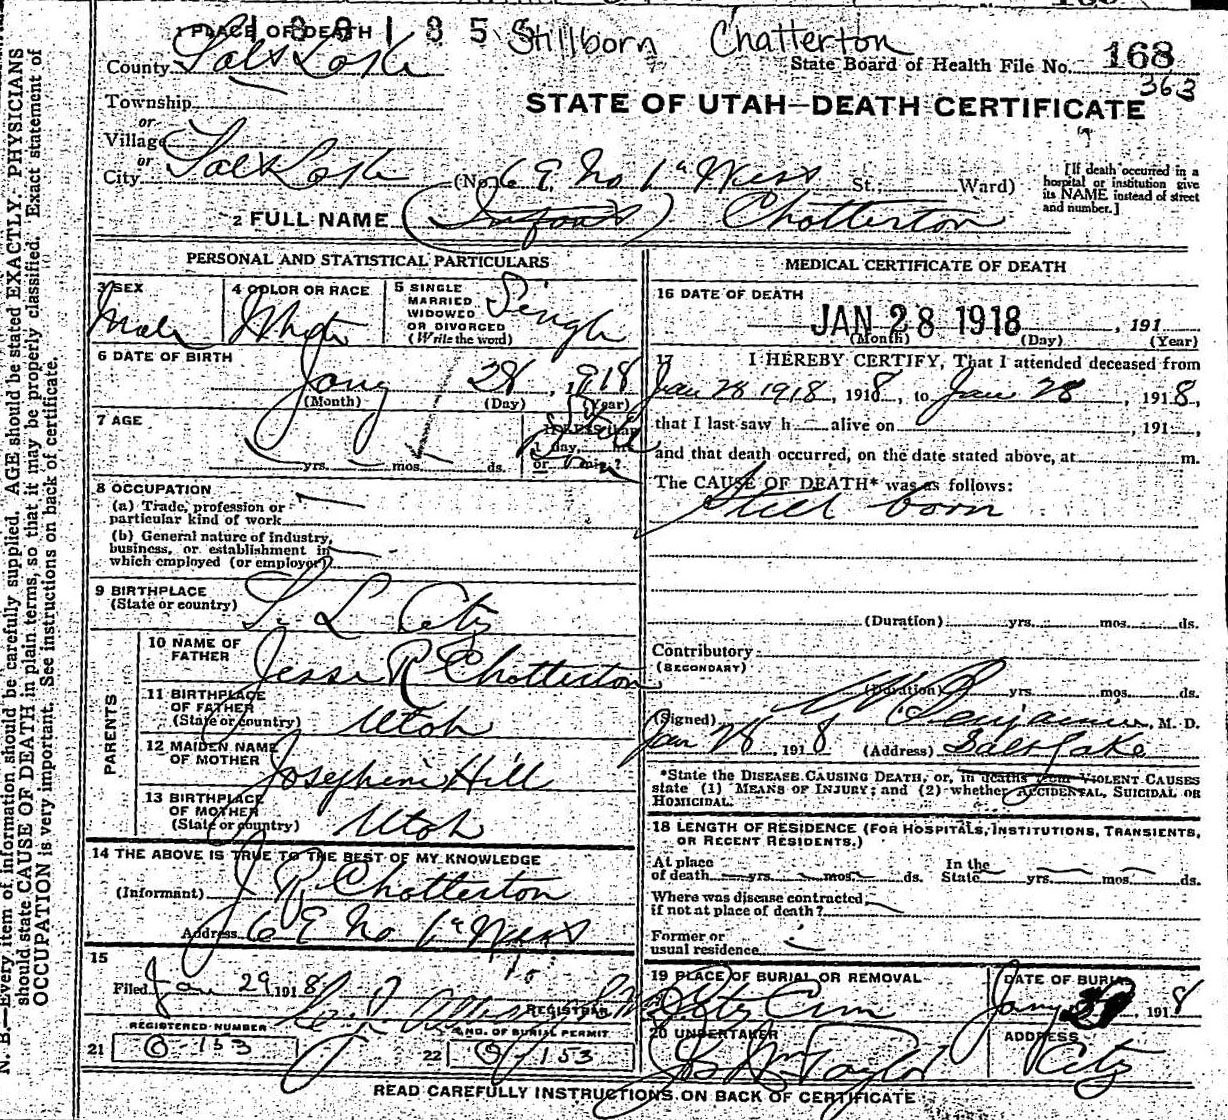 Stillborn Chatterton
1 PLACE OF DEATH
County Salt Lake
State Board of Health File No. 168
363
Township
or
Village
or
City Salt Lake
STATE OF UTAH—DEATH CERTIFICATE
(No. 6 E No 1st West St.; Ward)
[If death occurred in a
hospital or institution give
its NAME instead of street
and number.]
2 FULL NAME (Infant) Chatterton
PERSONAL AND STATISTICAL PARTICULARS
3 SEX
Male
4 COLOR OR RACE
White
5 SINGLE
MARRIED
WIDOWED
OR DIVORCED
(Write the word)
Single
6 DATE OF BIRTH
Jany 28, 1918
(Month) (Day) (Year)
7 AGE
yrs. mos. ds.
If LESS than
1 day, hrs.
or min.?
8 OCCUPATION
(a) Trade, profession or
particular kind of work
(b) General nature of industry,
business, or establishment in
which employed (or employer)
9 BIRTHPLACE
(State or country)
S. L. City
PARENTS
10 NAME OF
FATHER
Jesse R Chatterton
11 BIRTHPLACE
OF FATHER
(State or country)
Utah
12 MAIDEN NAME
OF MOTHER
Josephine Hill
13 BIRTHPLACE
OF MOTHER
(State or country)
Utah
14 THE ABOVE IS TRUE TO THE BEST OF MY KNOWLEDGE
(Informant) J R Chatterton
Address 6 E No 1st West
15
Filed Jan 29 1918
REGISTRAR
REGISTERED NUMBER
21 0-153
NO. OF BURIAL PERMIT
22 0-153
MEDICAL CERTIFICATE OF DEATH
16 DATE OF DEATH
JAN 28 1918, 191
(Month) (Day) (Year)
17 I HEREBY CERTIFY, That I attended deceased from
Jan 28 1918, 1918, to Jan 28, 1918,
that I last saw h alive on , 191 ,
and that death occurred, on the date stated above, at m.
The CAUSE OF DEATH* was as follows:
Still born
(Duration) yrs. mos. ds.
Contributory
(SECONDARY)
(Duration) yrs. mos. ds.
(Signed) Benjamin, M. D.
Jan 28, 1918 (Address) Salt Lake
*State the DISEASE CAUSING DEATH, or, in deaths from VIOLENT CAUSES
state (1) MEANS OF INJURY; and (2) whether ACCIDENTAL, SUICIDAL OR
HOMICIDAL.
18 LENGTH OF RESIDENCE (FOR HOSPITALS, INSTITUTIONS, TRANSIENTS,
OR RECENT RESIDENTS.)
At place
of death yrs. mos. ds.
In the
State yrs. mos. ds.
Where was disease contracted,
if not at place of death?
Former or
usual residence
19 PLACE OF BURIAL OR REMOVAL
City Cem
DATE OF BURIAL
Jany , 1918
20 UNDERTAKER
Jos Wm Taylor
ADDRESS
City
READ CAREFULLY INSTRUCTIONS ON BACK OF CERTIFICATE
N. B.—Every item of information should be carefully supplied. AGE should be stated EXACTLY. PHYSICIANS
should state CAUSE OF DEATH in plain terms, so that it may be properly classified. Exact statement of
OCCUPATION is very important. See instructions on back of certificate.